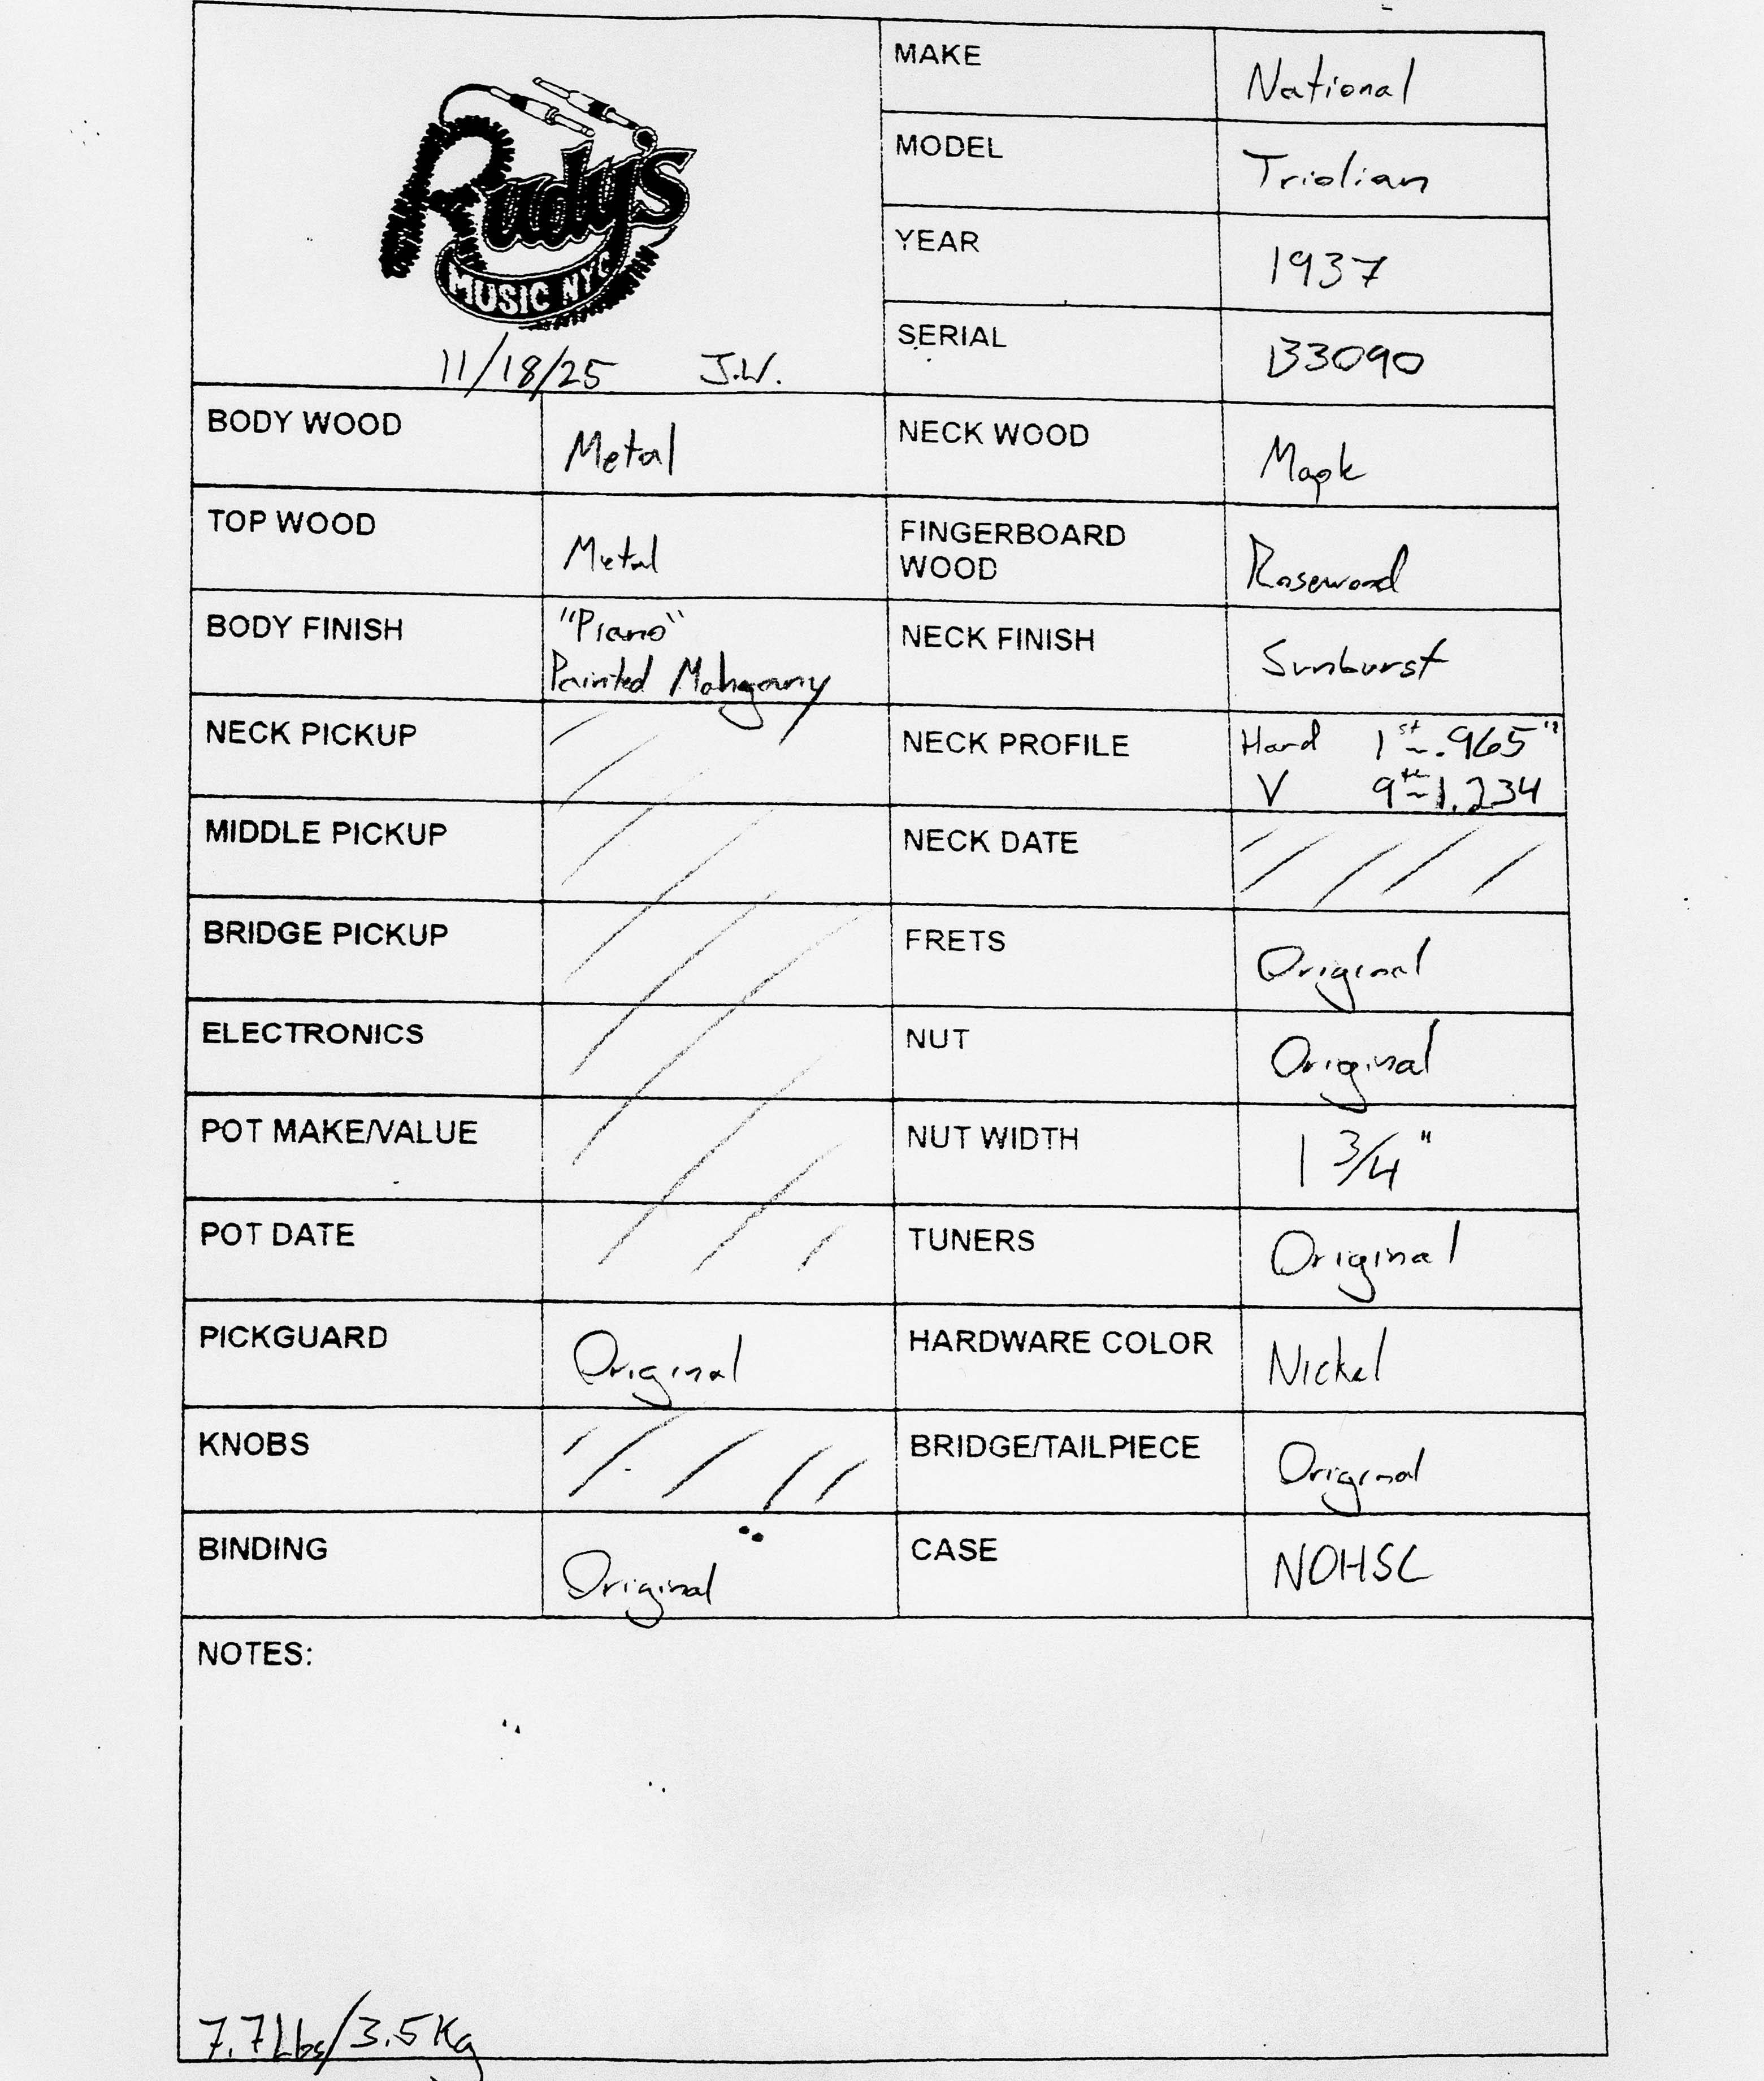 Rudy's
MUSIC NYC
11/18/25 J.W.
MAKE National
MODEL Triolian
YEAR 1937
SERIAL B3090
BODY WOOD Metal
NECK WOOD Maple
TOP WOOD Metal
FINGERBOARD
WOOD Rosewood
BODY FINISH "Piano"
Painted Mahgany
NECK FINISH Sunburst
NECK PICKUP
NECK PROFILE Hard 1st ~ .965"
V 9th ~ 1.234
MIDDLE PICKUP
NECK DATE
BRIDGE PICKUP
FRETS Original
ELECTRONICS
NUT Original
POT MAKE/VALUE
NUT WIDTH 1 3/4"
POT DATE
TUNERS Original
PICKGUARD Original
HARDWARE COLOR Nickel
KNOBS
BRIDGE/TAILPIECE Original
BINDING Original
CASE NOHSC
NOTES:
7.7Lbs/3.5Kg